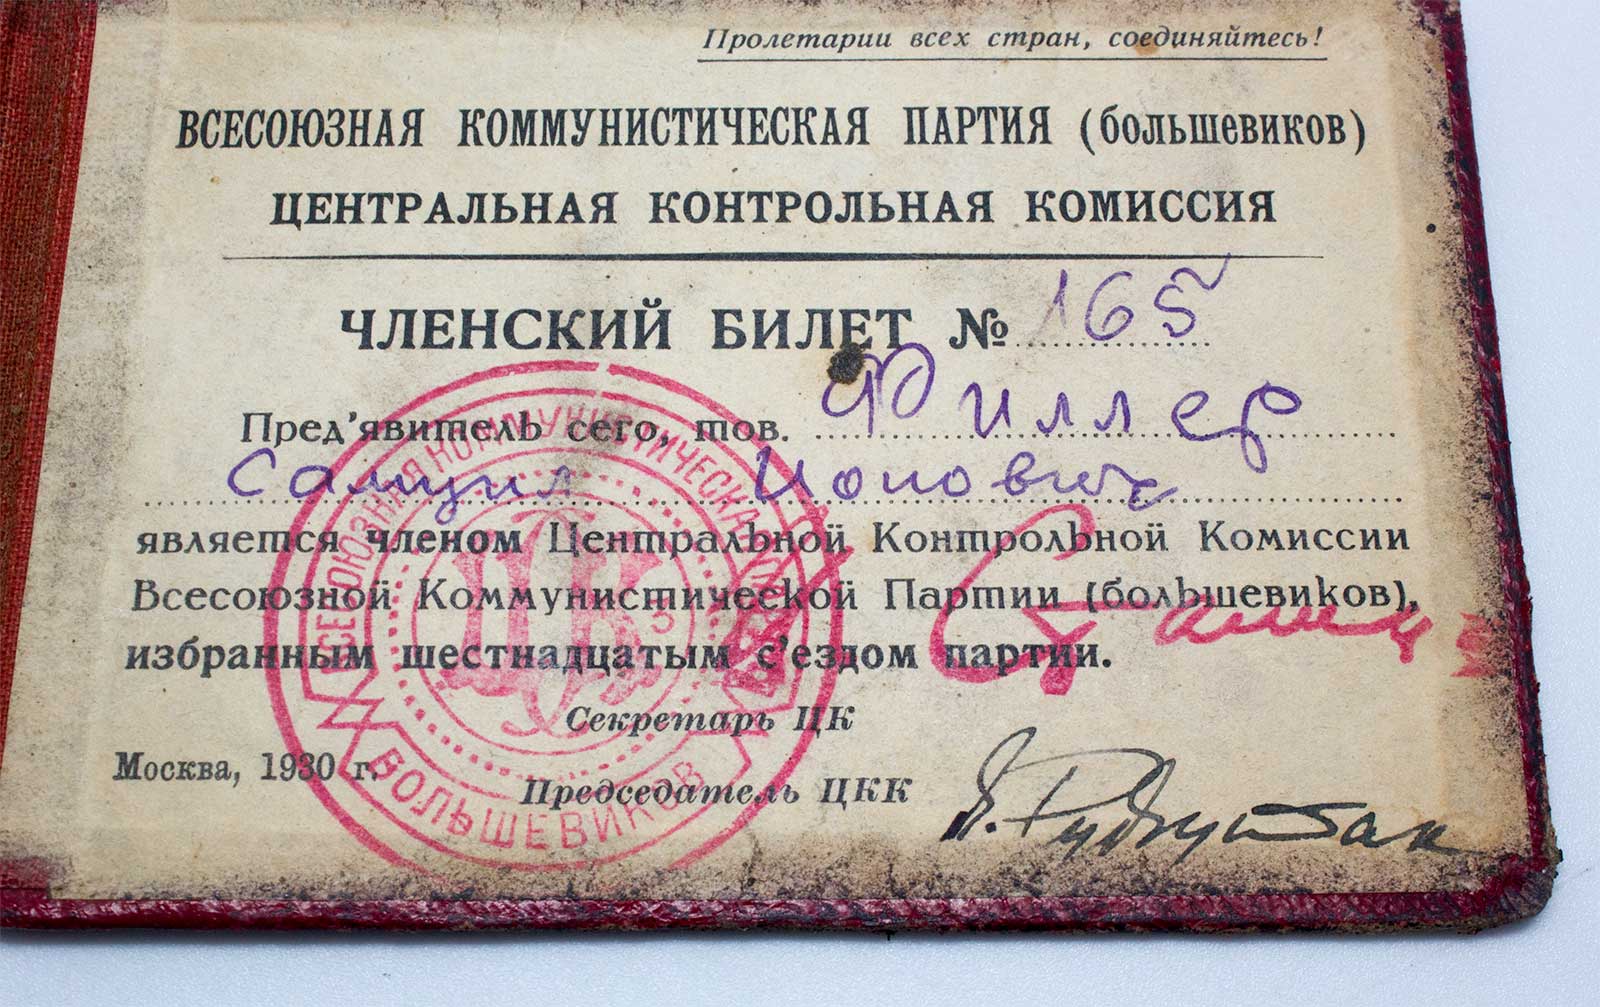 Пролетарии всех стран, соединяйтесь!
ВСЕСОЮЗНАЯ КОММУНИСТИЧЕСКАЯ ПАРТИЯ (большевиков)
ЦЕНТРАЛЬНАЯ КОНТРОЛЬНАЯ КОМИССИЯ
ЧЛЕНСКИЙ БИЛЕТ № 165
Пред'явитель сего, тов. Филлер
Самуил
является членом Центральной Контрольной Комиссии
Всесоюзной Коммунистической Партии (большевиков),
избранным шестнадцатым с'ездом партии.
Секретарь ЦК
И Сталин
Москва, 1930 г.
Председатель ЦКК
Я. Рудзутак
ВСЕСОЮЗНАЯ КОММУНИСТИЧЕСКАЯ
БОЛЬШЕВИКОВ
ЦК